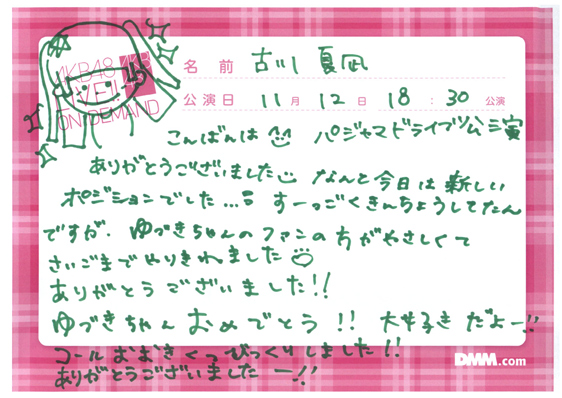 AKB48
LIVE!!
ON DEMAND
名前 古川 夏凪
公演日 11月 12日 18:30 公演
こんばんは パジャマドライブ公演
ありがとうございました なんと今日は新しい
ポジションでした... すーっごくきんちょうしてたん
ですが、ゆづきちゃんのファンの方がやさしくて
さいごまでやりきれました
ありがとうございました!!
ゆづきちゃんおめでとう!! 大好きだよー!!
コールおおきくってびっくりしました!!
ありがとうございましたー!!
DMM.com